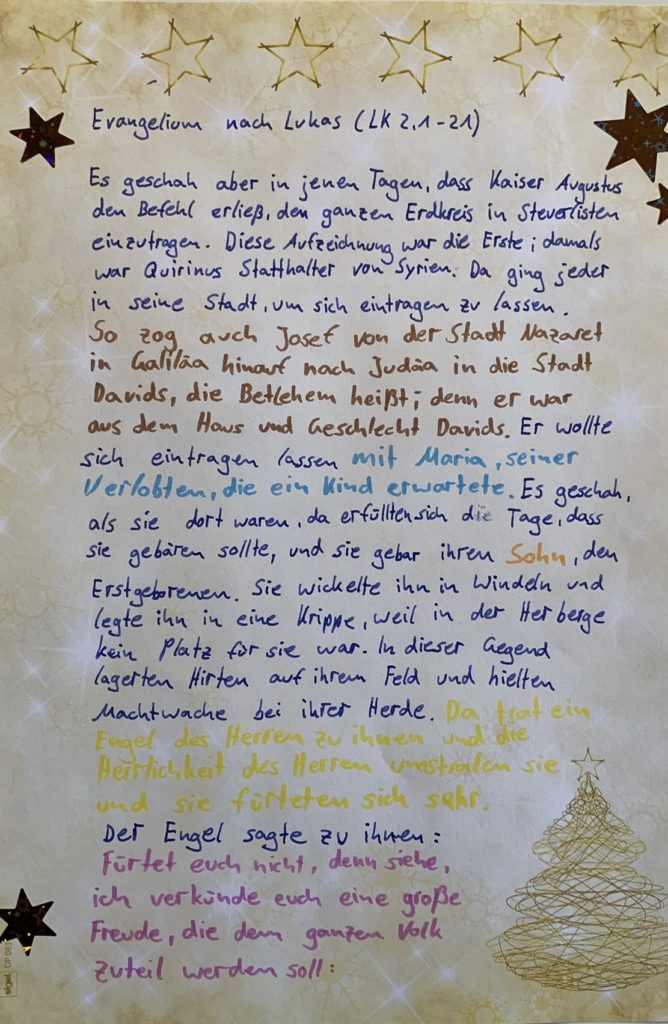 Evangelium nach Lukas (LK 2,1-21)
Es geschah aber in jenen Tagen, dass Kaiser Augustus
den Befehl erließ, den ganzen Erdkreis in Steuerlisten
einzutragen. Diese Aufzeichnung war die Erste; damals
war Quirinus Statthalter von Syrien. Da ging jeder
in seine Stadt, um sich eintragen zu lassen.
So zog auch Josef von der Stadt Nazaret
in Galiläa hinauf nach Judäa in die Stadt
Davids, die Betlehem heißt; denn er war
aus dem Haus und Geschlecht Davids. Er wollte
sich eintragen lassen mit Maria, seiner
Verlobten, die ein Kind erwartete. Es geschah,
als sie dort waren, da erfüllten sich die Tage, dass
sie gebären sollte, und sie gebar ihren Sohn, den
Erstgeborenen. Sie wickelte ihn in Windeln und
legte ihn in eine Krippe, weil in der Herberge
kein Platz für sie war. In dieser Gegend
lagerten Hirten auf ihrem Feld und hielten
Nachtwache bei ihrer Herde. Da trat ein
Engel des Herren zu ihnen und die
Herrlichkeit des Herren umstralen sie
und sie fürteten sich sehr.
Der Engel sagte zu ihnen:
Fürtet euch nicht, denn siehe,
ich verkünde euch eine große
Freude, die dem ganzen Volk
zuteil werden soll:
sigel DP 083